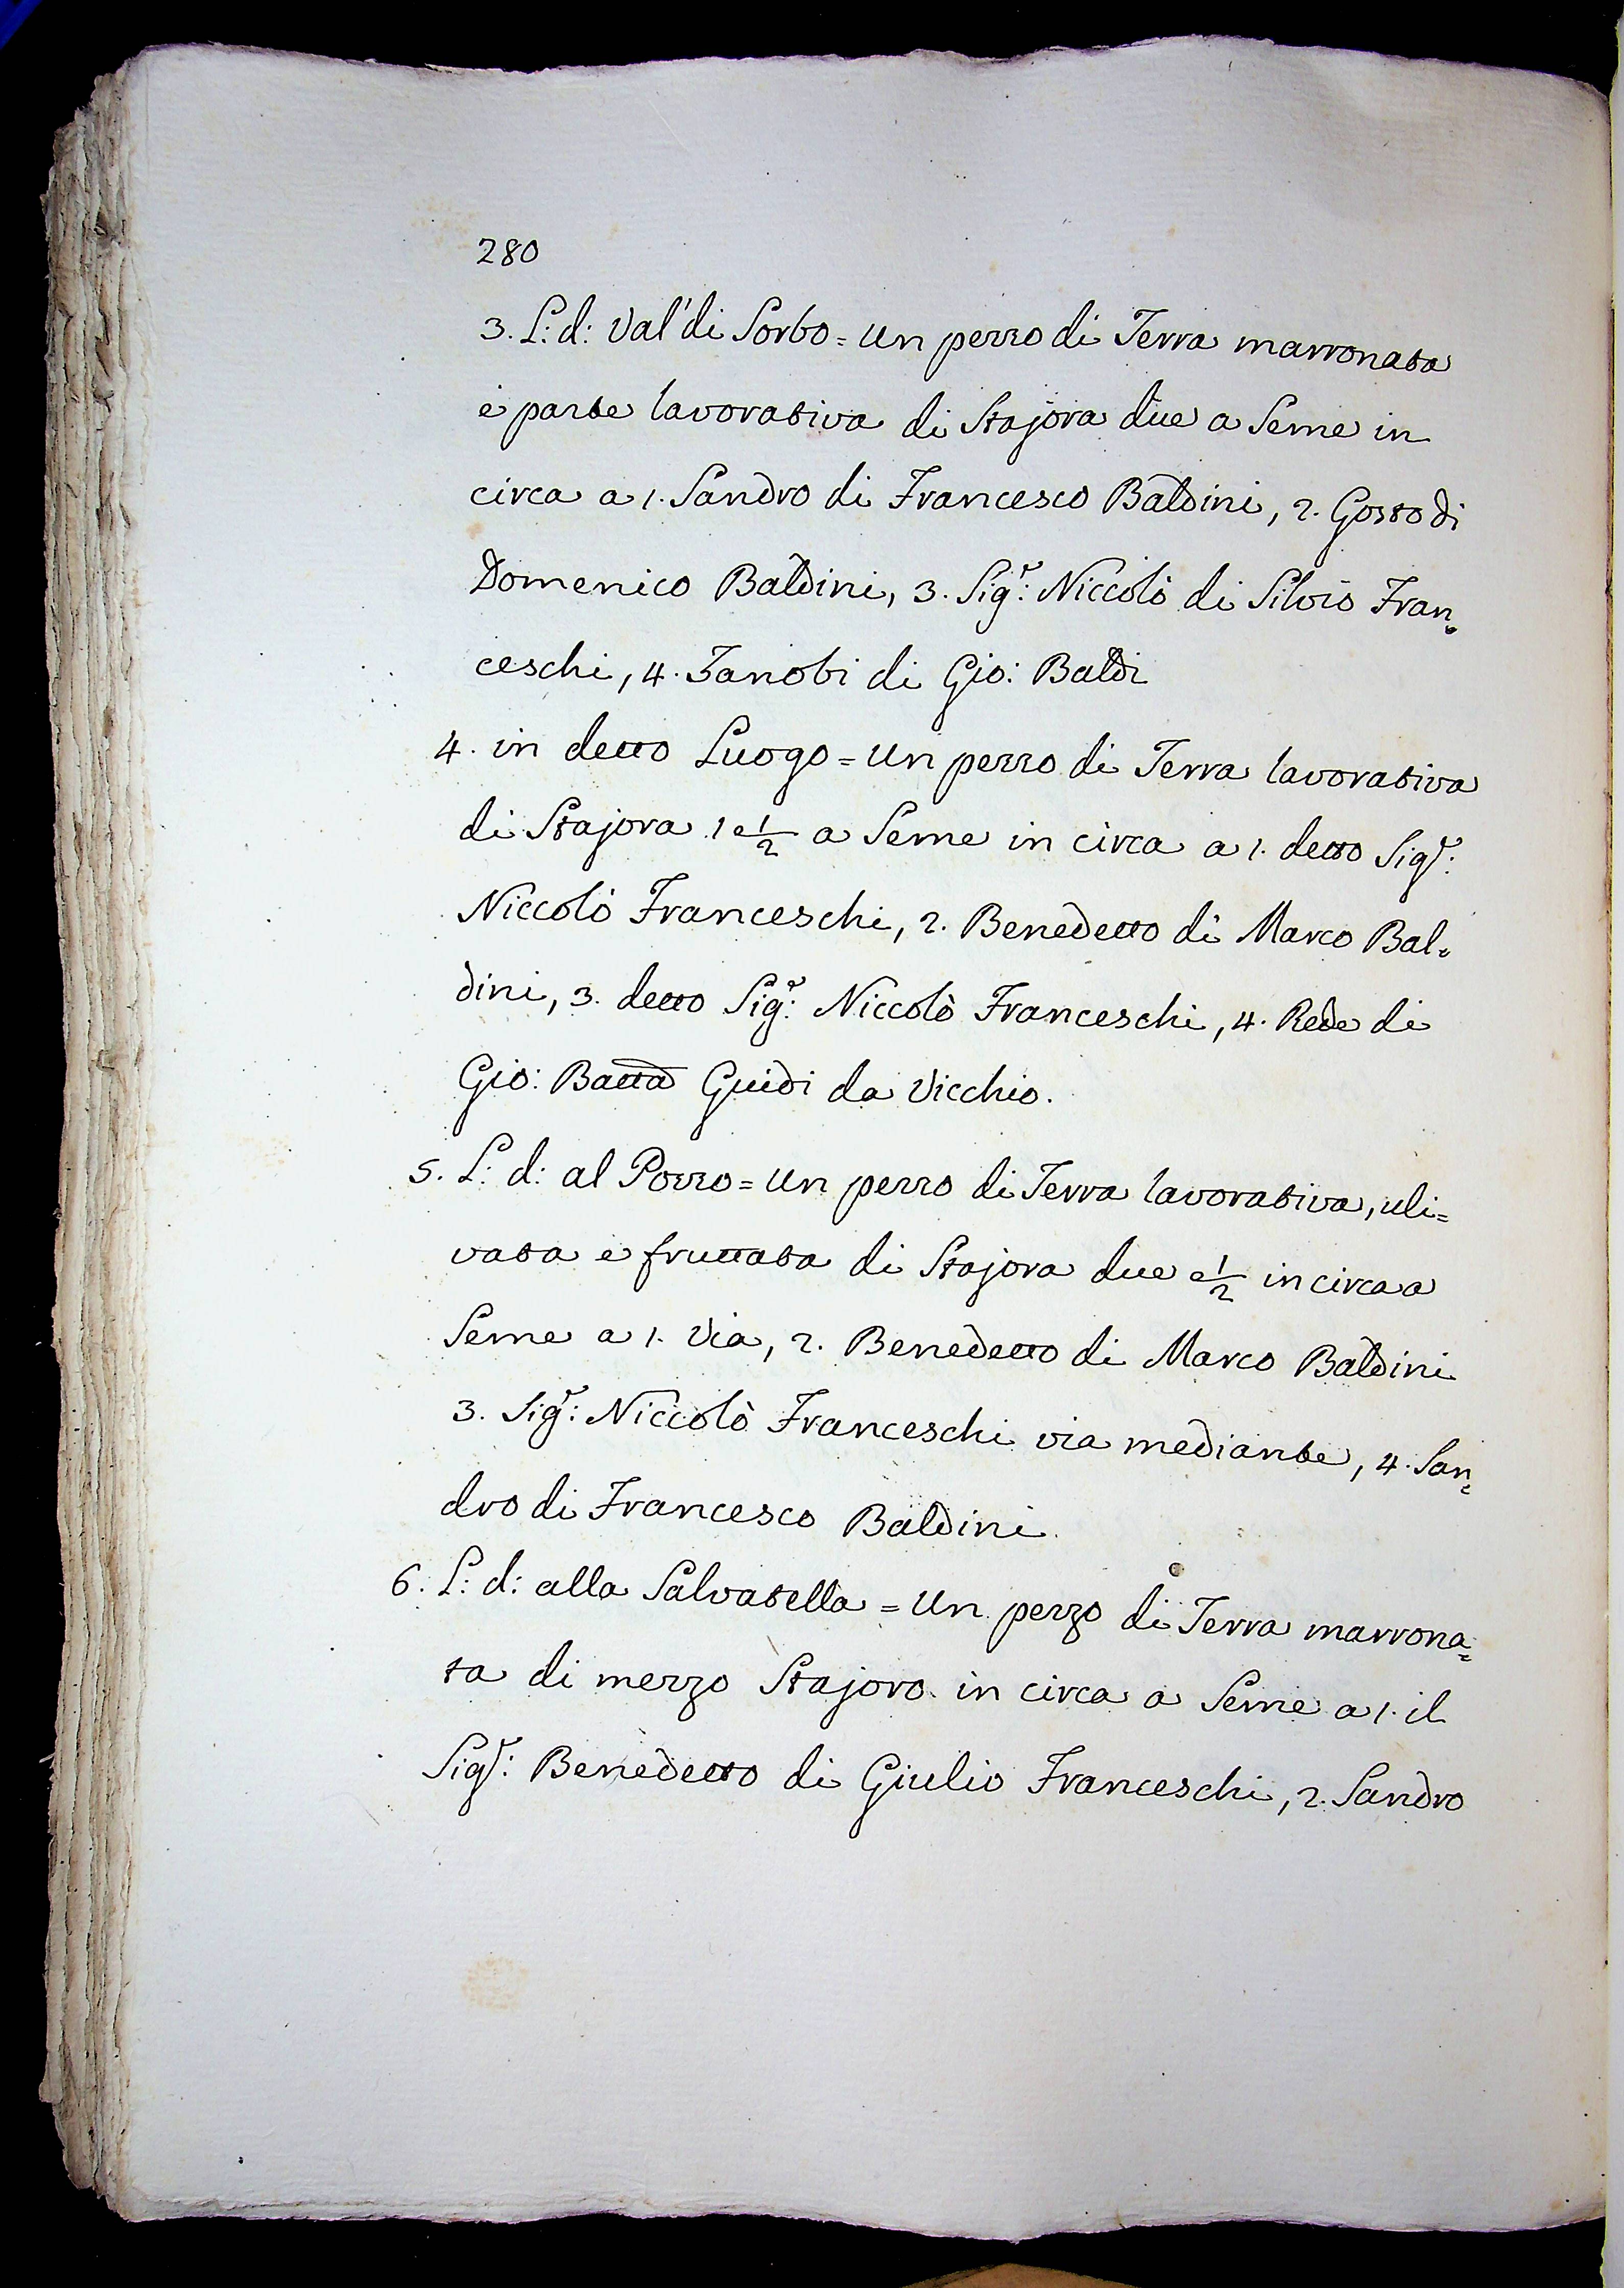 280
3. L: d: Val' di Sorbo = Un pezzo di Terra marronata
e parte lavorativa di Stajora due a Seme in
circa a 1. Sandro di Francesco Baldini, 2. Gosto di
Domenico Baldini, 3. Sig.r: Niccolò di Silvio Fran=
ceschi, 4. Zanobi di Gio: Baldi
4. in detto Luogo = Un pezzo di Terra lavorativa
di Stajora 1 e 1/2 a Seme in circa a 1. detto Sig.r:
Niccolò Franceschi, 2. Benedetto di Marco Bal=
dini, 3. detto Sig.r: Niccolò Franceschi, 4. Rede di
Gio: Batta Guidi da Vicchio.
5. L: d: al Pozzo = Un pezzo di Terra lavorativa, uli=
vata e fruttata di Stajora due e 1/2 in circa a
Seme a 1. Via, 2. Benedetto di Marco Baldini
3. Sig.r: Niccolò Franceschi via mediante, 4. San=
dro di Francesco Baldini.
6. L: d: alla Salvatella = Un pezzo di Terra marrona=
ta di mezzo Stajoro in circa a Seme a 1. il
Sig.r: Benedetto di Giulio Franceschi, 2. Sandro